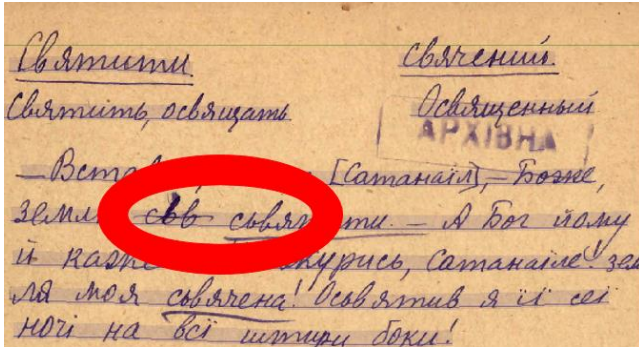 Святити
свячений.
Святить, освящать
Освященный
АРХІВНА
— Вста [Сатанаїл], — Боже,
земл съв сьвятити. — А Бог йому
й каже курись, Сатанаїле! зем
ля моя сьвячена! Осьвятив я її сеї
ночі на всі штири боки!